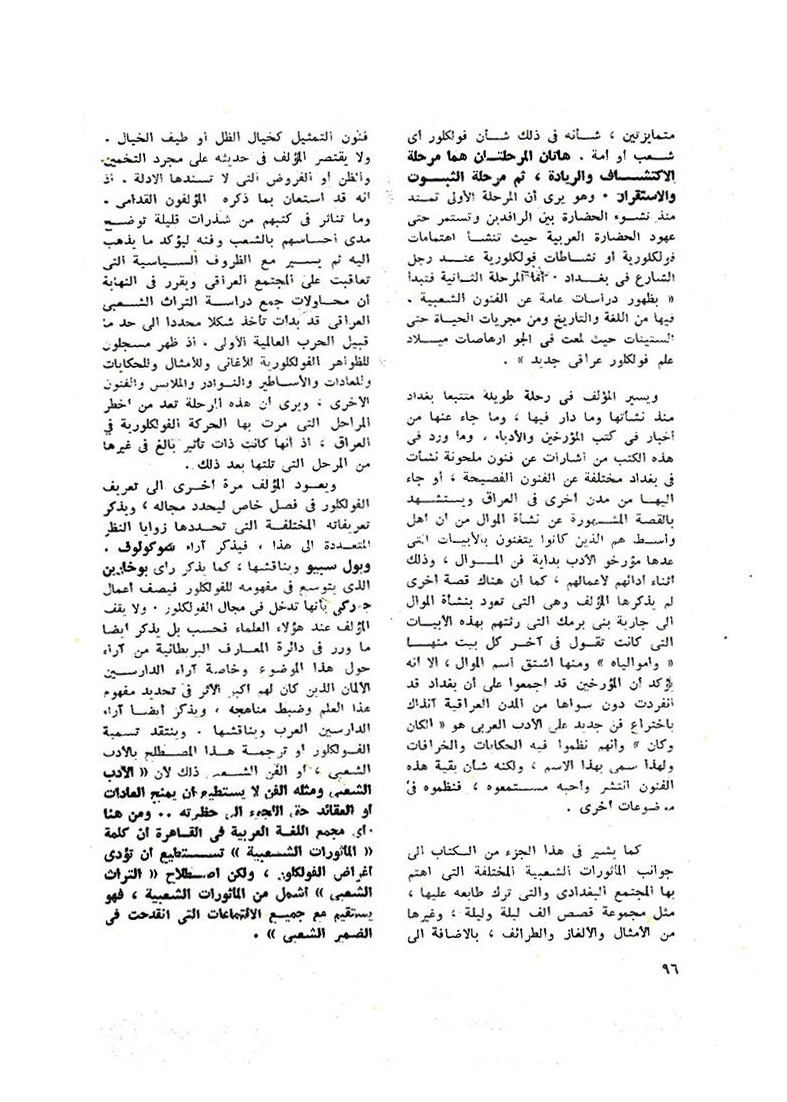 متمايزتين ، شأنه فى ذلك شأن فولكلور أى
شعب أو أمة . هاتان المرحلتان هما مرحلة
الاكتشاف والريادة ، ثم مرحلة الثبوت
والاستقرار . وهو يرى أن المرحلة الأولى تمتد
منذ نشوء الحضارة بين الرافدين وتستمر حتى
عهود الحضارة العربية حيث تنشأ اهتمامات
فولكلورية أو نشاطات فولكلورية عند رجل
الشارع فى بغداد . أما المرحلة الثانية فتبدأ
« بظهور دراسات عامة عن الفنون الشعبية .
فيها من اللغة والتاريخ ومن مجريات الحياة حتى
الستينات حيث لمعت فى الجو ارهاصات ميلاد
علم فولكلور عراقى جديد » .
ويسير المؤلف فى رحلة طويلة متتبعا بغداد
منذ نشأتها وما دار فيها ، وما جاء عنها من
أخبار فى كتب المؤرخين والأدباء ، وما ورد فى
هذه الكتب من اشارات عن فنون ملحونة نشأت
فى بغداد مختلفة عن الفنون الفصيحة ، أو جاء
اليها من مدن أخرى فى العراق ويستشهد
بالقصة المشهورة عن نشأة الموال من ان أهل
وأسط هم الذين كانوا يتغنون بالأبيات التى
عدها مؤرخو الأدب بداية فن الموال ، وذلك
أثناء ادائهم لاعمالهم ، كما أن هناك قصة أخرى
لم يذكرها المؤلف وهى التى تعود بنشأة الموال
الى جارية بنى برمك التى رثتهم بهذه الأبيات
التى كانت تقول فى آخر كل بيت منها
« واموالياه » ومنها اشتق اسم الموال ، الا انه
يؤكد أن المؤرخين قد اجمعوا على أن بغداد قد
انفردت دون سواها من المدن العراقية آنذاك
باختراع فن جديد على الأدب العربى هو « الكان
وكان » وانهم نظموا فيه الحكايات والخرافات
ولهذا سمى بهذا الاسم ، ولكنه شأن بقية هذه
الفنون انتشر واحبه مستمعوه ، فنظموه فى
موضوعات أخرى .
كما يشير فى هذا الجزء من الكتاب الى
جوانب المأثورات الشعبية المختلفة التى اهتم
بها المجتمع البغدادى والتى ترك طابعه عليها ،
مثل مجموعة قصص الف ليلة وليلة ، وغيرها
من الأمثال والألغاز والطرائف ، بالاضافة الى
فنون التمثيل كخيال الظل أو طيف الخيال .
ولا يقتصر المؤلف فى حديثه على مجرد التخمين
والظن أو الفروض التى لا تسندها الادلة . اذ
انه قد استعان بما ذكره المؤلفون القدامى .
وما تناثر فى كتبهم من شذرات قليلة توضح
مدى احساسهم بالشعب وفنه ليؤكد ما يذهب
اليه ثم يسير مع الظروف السياسية التى
تعاقبت على المجتمع العراقى ويقرر فى النهاية
أن محاولات جمع دراسة التراث الشعبى
العراقى قد بدأت تأخذ شكلا محددا الى حد ما
قبيل الحرب العالمية الأولى . اذ ظهر مسجلون
للظواهر الفولكلورية للأغانى وللأمثال وللحكايات
وللعادات والأساطير والنوادر والملابس والفنون
الاخرى ، ويرى أن هذه المرحلة تعد من أخطر
المراحل التى مرت بها الحركة الفولكلورية فى
العراق ، اذ انها كانت ذات تأثير بالغ فى غيرها
من المرحل التى تلتها بعد ذلك .
ويعود المؤلف مرة أخرى الى تعريف
الفولكلور فى فصل خاص ليحدد مجاله ، ويذكر
تعريفاته المختلفة التى تحددها زوايا النظر
المتعددة الى هذا ، فيذكر آراء سوكولوف .
وبول سبيو ويناقشها ، كما يذكر رأى بوخارين
الذى يتوسع فى مفهومه للفولكلور فيصف أعمال
جوركى بأنها تدخل فى مجال الفولكلور . ولا يقف
المؤلف عند هؤلاء العلماء فحسب بل يذكر أيضا
ما ورر فى دائرة المعارف البريطانية من آراء
حول هذا الموضوع وخاصة آراء الدارسين
الألمان الذين كان لهم اكبر الأثر فى تحديد مفهوم
هذا العلم وضبط مناهجه ، ويذكر أيضا آراء
الدارسين العرب ويناقشها . وينتقد تسمية
الفولكلور أو ترجمة هذا المصطلح بالأدب
الشعبى ، أو الفن الشعبى ذلك لأن « الأدب
الشعبى ومثله الفن لا يستطيع أن يمنح العادات
أو العقائد حق اللجوء الى حظيرته .. ومن هنا
رأى مجمع اللغة العربية فى القاهرة أن كلمة
« المأثورات الشعبية » تستطيع أن تؤدى
أغراض الفولكلور ، ولكن اصطلاح « التراث
الشعبى » أشمل من المأثورات الشعبية ، فهو
يستقيم مع جميع الالتماعات التى انقدحت فى
الضمير الشعبى » .
٩٦